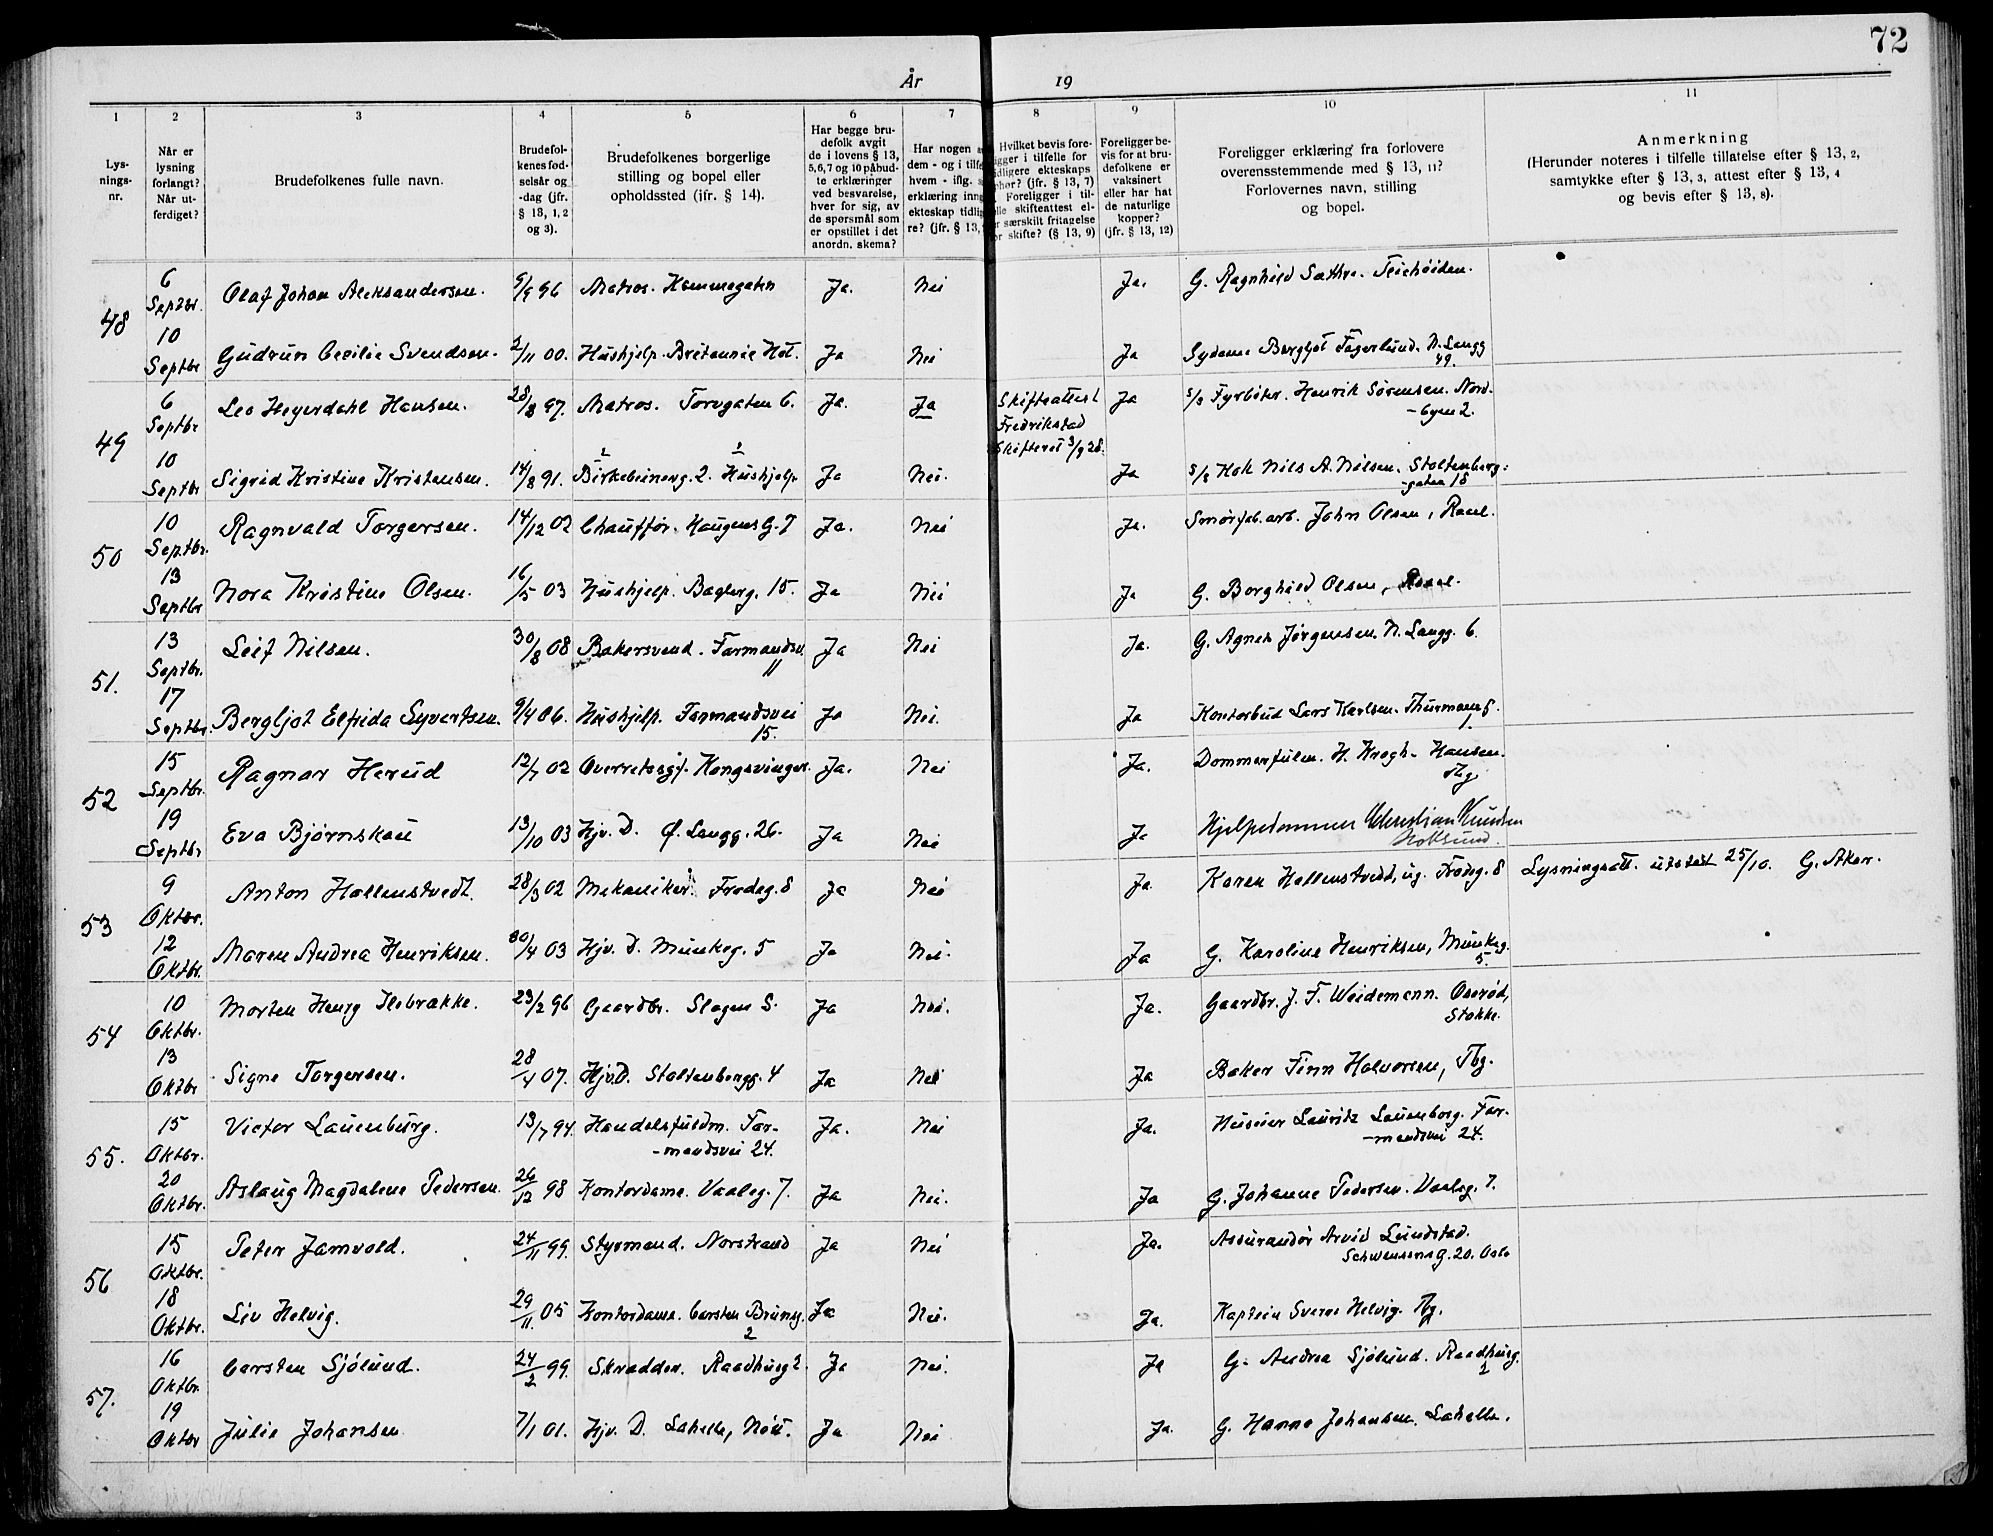 72
År 19
1 2 3 4 5 6 7 8 9 10 11
Lys-
nings-
nr.
Når er
lysning
forlangt?
Når ut-
ferdiget?
Brudefolkenes fulle navn.
Brudefol-
kenes fød-
selsår og
-dag (jfr.
§ 13, 1, 2
og 3).
Brudefolkenes borgerlige
stilling og bopel eller
opholdssted (jfr. § 14).
Har begge bru-
defolk avgit
de i lovens § 13,
5,6,7 og 10 påbud-
te erklæringer
ved besvarelse,
hver for sig, av
de spørsmål som
er opstillet i det
anordn. skema?
Har nogen
dem - og i tilf
hvem - iflg.
erklæring inn
ekteskap tidli
re? (jfr. § 13,
Hvilket bevis fore-
igger i tilfelle for
idligere ekteskaps
phør? (jfr. § 13, 7)
Foreligger i til-
elle skifteattest el-
r særskilt fritagelse
or skifte? (§ 13, 9)
Foreligger be-
vis for at bru-
defolkene er
vaksinert
eller har hat
de naturlige
kopper?
(jfr. § 13, 12)
Foreligger erklæring fra forlovere
overensstemmende med § 13, 11?
Forlovernes navn, stilling
og bopel.
Anmerkning
(Herunder noteres i tilfelle tillatelse efter § 13, 2,
samtykke efter § 13, 3, attest efter § 13, 4
og bevis efter § 13, 8).
48 6 Septbr. Olaf Johan Aleksandersen. 9/9 96 Matros. Kammegaten Ja. Nei Ja. G. Ragnhild Sæthre.
10 Septbr Gudrun Cecilie Svendsen. 2/11 00. Hushjelp. Britannia Hot. Ja Nei Ja Bergljot Fagerlund. N. Langg
49.
49 6 Septbr Leo Heyerdahl Hansen. 28/8 97. Matros. Torvgaten 6. Ja. Ja Skifteattest Ja s/s Fyrbøter. Henrik Sørensen. Nord-
Fredrikstad -byen 2.
Skifteret 3/9 28.
10 Septbr Sigrid Kristine Kristensen. 14/8 91. Birkebeinerg. 2. Hushjelp Ja Nei. Ja s/s Kok Nils A. Nilsen. Stoltenberg-
-gaten 18
50 10 Septbr. Ragnvald Torgersen. 14/12 02 Chauffør. Haugens G. 7 Ja. Nei Ja. Smørfab. arb. John Olsen, Rael.
13 Septbr Nora Kristine Olsen. 16/5 03 Hushjelp. Baglerg. 15. Ja Nei Ja G. Borghild Olsen,
51. 13 Septbr. Leif Nilsen. 30/8 08 Bakersvend. Farmandsv. Ja Nei Ja. G. Agnes Jørgensen. N. Langg. 6.
11
17 Septbr. Bergljot Elfrida Syvertsen. 9/4 06. Hushjelp. Farmandsvei Ja Nei. Ja Kontorbud Lars Karlsen. Thurmansg.
15. 1.
52 15 Septbr. Ragnar Herud 12/7 02 Overretssgf. Kongsvinger. Ja. Nei Ja. Dommerfulm. H. Krogh-Hansen.
Tbg
19 Septbr Eva Bjørnskau 13/10 03 Hjv. D. Ø. Langg. 26. Ja Nei Ja Hjelpedommer Christian Knudsen
Hoksund.
53 9 Oktbr. Anton Hallenstvedt. 28/3 02 Mekaniker. Frodeg. 8 Ja Nei Ja Karen Hallenstvedt, ug. Frodeg. 8 Lysningsatt. utstedt 25/10. G. Aker.
12 Oktbr. Maren Andrea Henriksen. 30/4 03 Hjv. D. Munkeg. 5 Ja Nei. Ja G. Karoline Henriksen, Munkeg.
5.
54 10 Oktbr. Morten Henry Ilebrække. 23/2 96 Gaardbr. Slagen S. Ja Nei. Ja. Gaardbr. J. F. Weidemann. Oserød,
Stokke.
13 Oktbr Signe Torgersen. 28/4 07. Hjv. D. Stoltenbergg. 4 Ja Nei Ja Baker Finn Halvorsen, Tbg.
55. 15 Oktbr. Victor Lauenburg. 13/7 94. Handelsfuldm. Far- Ja. Nei Ja. Huseier Lauritz Lauenborg. Far-
-mandsvei 24. -mandsvei 24.
20 Oktbr. Aslaug Magdalene Pedersen. 26/12 98 Kontordame. Vaaleg. 7. Ja Nei. Ja G. Johanne Pedersen. Vaaleg. 7.
56 15 Oktbr. Peter Jamvold. 24/11 99. Styrmand. Norstrand Ja Nei Ja. Assurandør Arvid Lundstad.
Schwensensg. 20. Oslo
18 Oktbr. Liv Helvig. 29/11. 05 Kontordame. Carsten Brunsg. Ja Nei. Ja. Kaptein Sverre Helvig. Tbg.
2
57. 16 Oktbr. Carsten Sjölund. 24/2 99. Skrædder. Raadhusg 2. Ja Nei. Ja G. Andrea Sjölund. Raadhusg.
2
19 Oktbr Julie Johansen 7/1 01. Hjv. D. Lahelle, Nøtt. Ja Nei Ja. G. Hanna Johansen. Lahelle.